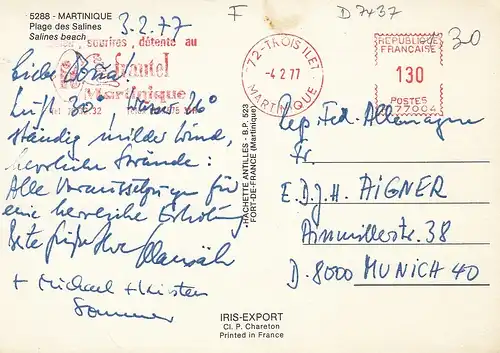 5288 - MARTINIQUE
Plage des Salines
Salines beach
3.2.77
F
D 7437
sourires, détente au
Frantel
Martinique
Liebe
Luft 30°, Wasser 26°
ständig milder Wind,
herrliche Strände:
Alle Voraussetzungen für
eine herrliche Erholung
Beste Grüße Ihre
+ Michael + Kirsten
Sommer
HACHETTE ANTILLES - B.P. 523
FORT-DE-FRANCE (Martinique)
72-TROIS ILETS
-4 2 77
MARTINIQUE
REPUBLIQUE
FRANCAISE
130
POSTES
77004
30
Rep. Fed. Allemagne
Fr.
E.D.J.H. AIGNER
Ainmillerstr. 38
D-8000 MUNICH 40
IRIS-EXPORT
Cl. P. Chareton
Printed in France